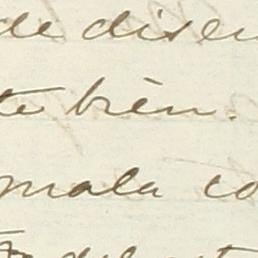 de disen
te bièn.
mala co